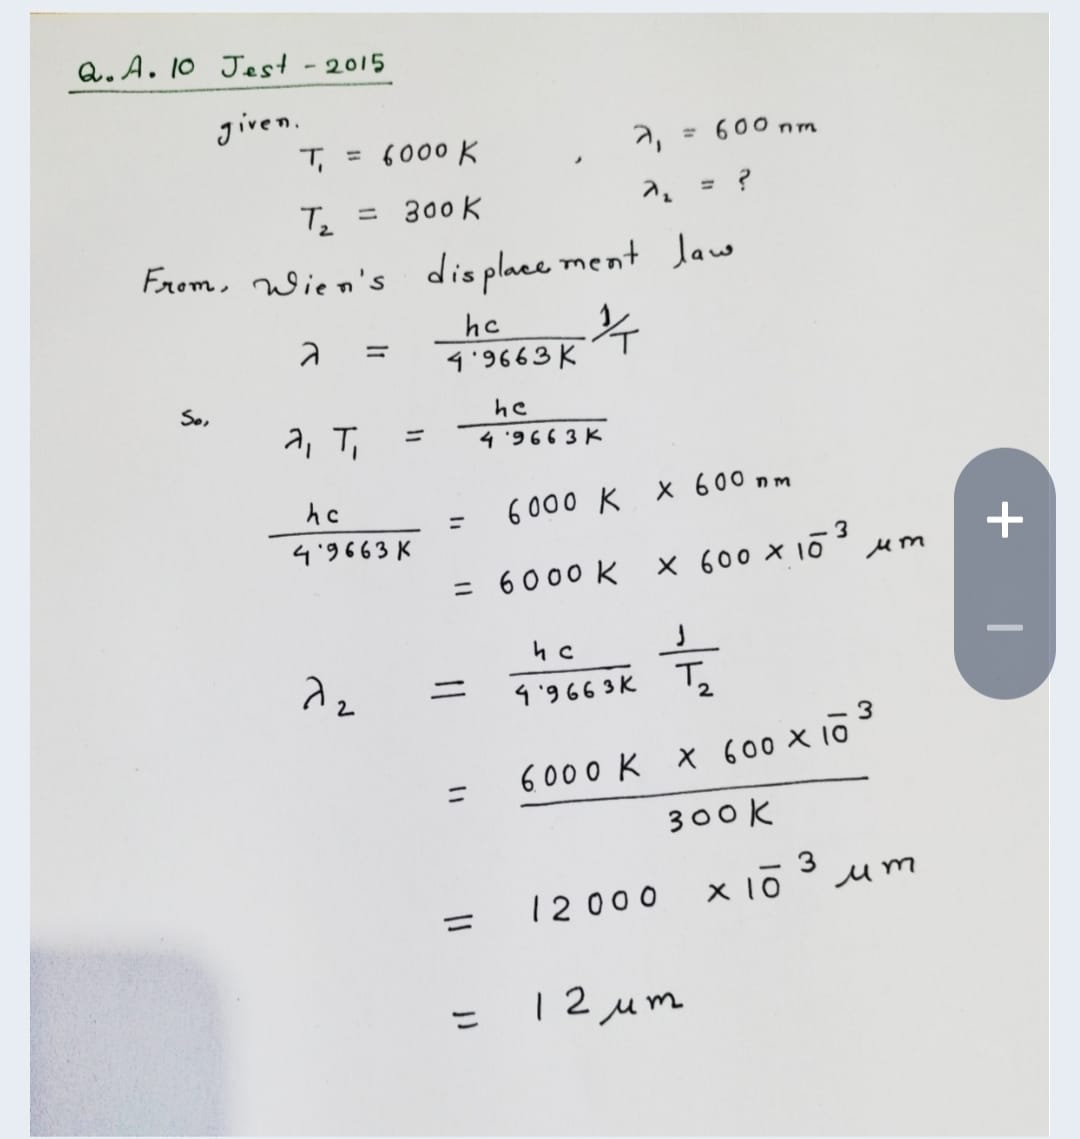 Q. A. 10 Jest - 2015
given.
T₁ = 6000 K , λ₁ = 600 nm
T₂ = 300 K λ₂ = ?
From, Wien's displacement law
λ = hc/4.9663 K 1/T
So, λ₁ T₁ = hc/4.9663 K
hc/4.9663 K = 6000 K × 600 nm
= 6000 K × 600 × 10⁻³ μm
λ₂ = hc/4.9663 K 1/T₂
= 6000 K × 600 × 10⁻³/300 K
= 12000 × 10⁻³ μm
= 12 μm